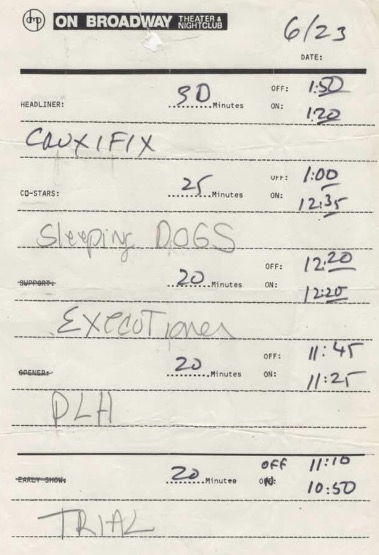 dmp ON BROADWAY THEATER & NIGHTCLUB
6/23
DATE:
OFF: 1:50
HEADLINER: 30 Minutes ON: 1:20
CRUXIFIX
OFF: 1:00
CO-STARS: 25 Minutes ON: 12:35
Sleeping DOGS
OFF: 12:20
SUPPORT: 20 Minutes ON:
EXECUTioner
OFF: 11:45
OPENER: 20 Minutes ON: 11:25
PLH
OFF 11:10
EARLY SHOW: 20 Minutes ON 10:50
TRIAL